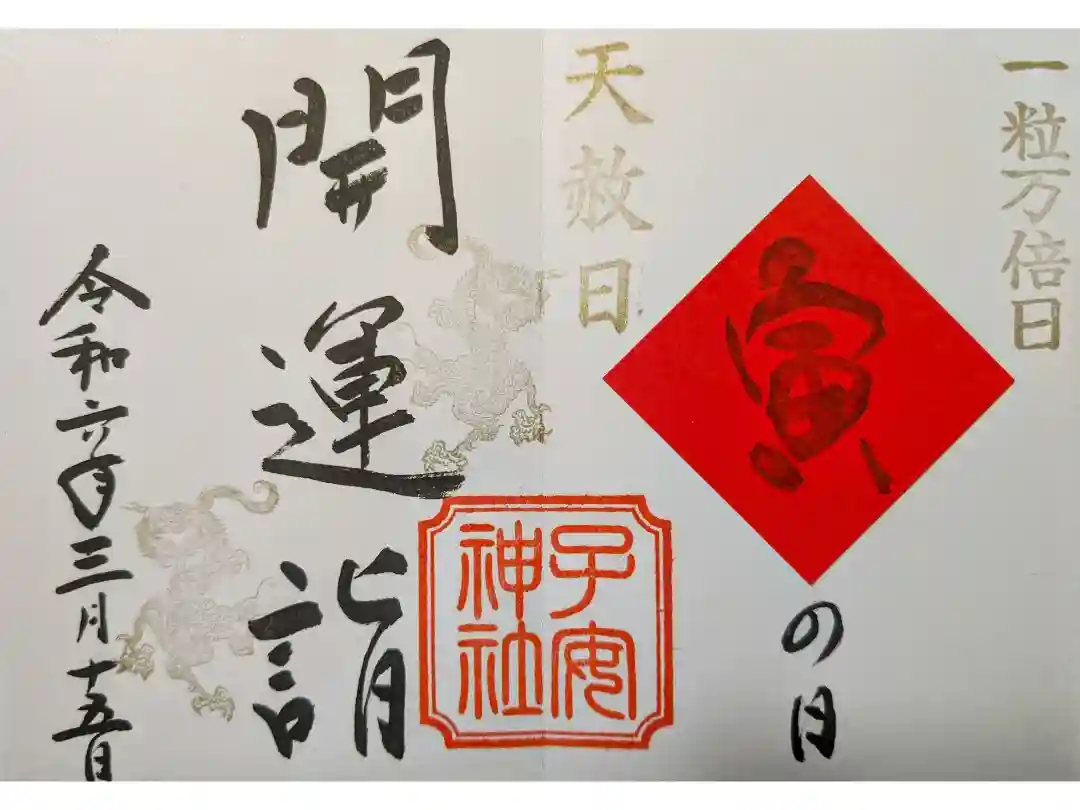 一粒万倍日
寅の日
天赦日
子安
神社
開運詣
令和六年三月十五日